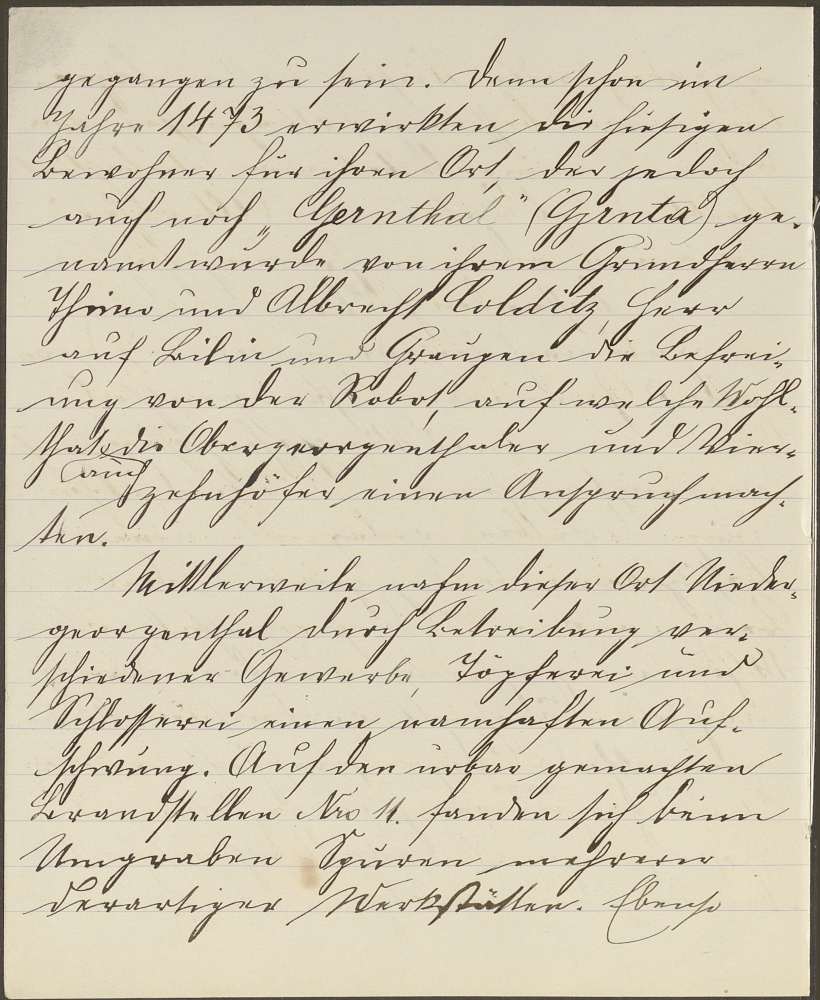 gegangen zu sein. Denn schon im
Jahre 1473 erwirkten die hiesigen
Bewohner für ihren Ort, der jedoch
auch noch „Gernthal" (Gjrnta) ge-
nannt wurde von ihrem Grundherrn
Thimo und Albrecht Colditz, Herr
auf Bilin und Graupen die Befrei-
ung von der Robot, auf welche Wohl-
that die Obergeorgenthaler und Vier-
auch
zehnhöfer einen Anspruch mach-
ten.
Mittlerweile nahm dieser Ort Nieder-
georgenthal durch Betreibung ver-
schiedener Gewerbe, Töpferei und
Schlosserei einen namhaften Auf-
schwung. Auf den urbar gemachten
Brandstellen Nro 11. fanden sich beim
Umgraben Spuren mehrerer
derartiger Werkstätten. Ebenso